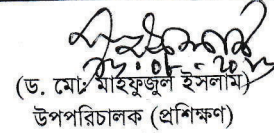 (ড. মোঃ মাহফুজুল ইসলাম)
উপপরিচালক (প্রশিক্ষণ)